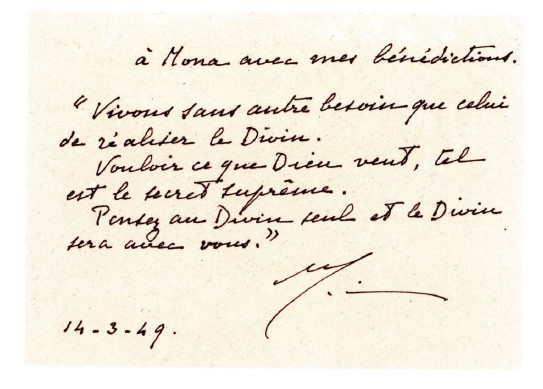 à Mona avec mes bénédictions.
"Vivons sans autre besoin que celui
de réaliser le Divin.
Vouloir ce que Dieu veut, tel
est le secret suprême.
Pensez au Divin seul et le Divin
sera avec vous."
14-3-49.